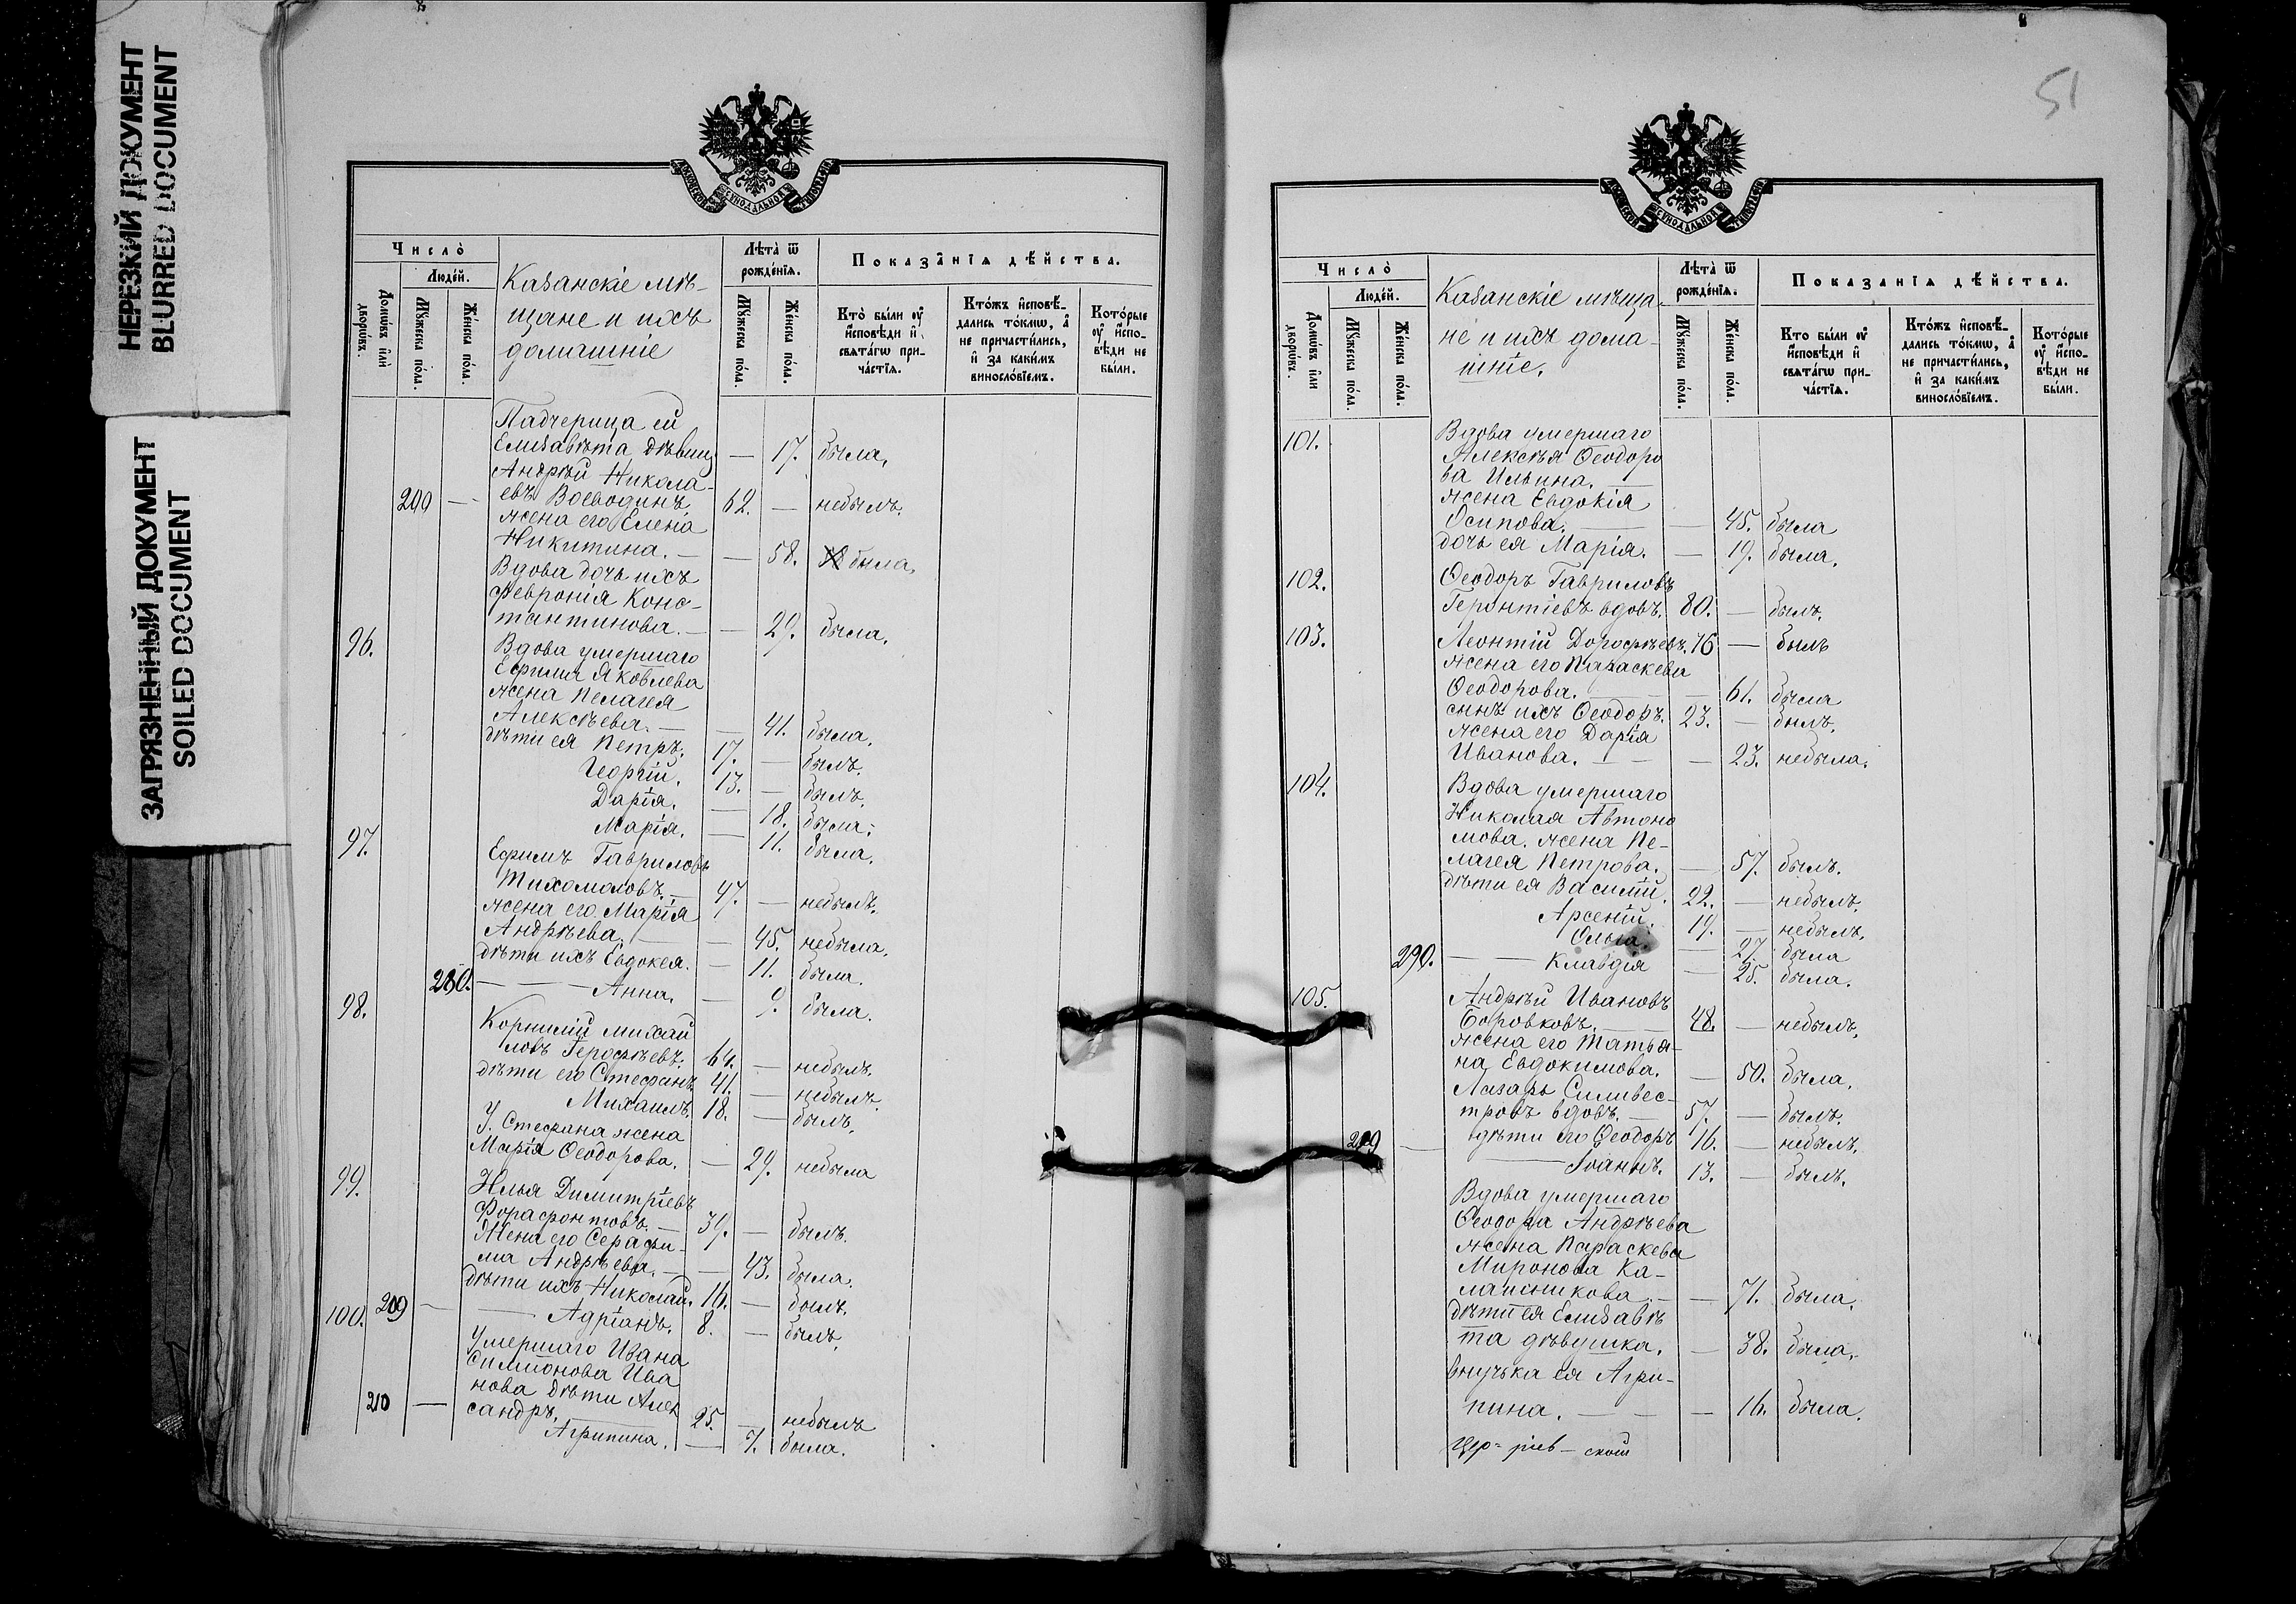 НЕРЕЗКИЙ ДОКУМЕНТ
BLURRED DOCUMENT
ЗАГРЯЗНЕННЫЙ ДОКУМЕНТ
SOILED DOCUMENT
МОСКОВСКОЙ СѴНОДАЛЬНОЙ ТИПОГРАФІИ
Число̀
Люде́й.
Домѡ́въ и҆лѝ дворѡ́въ.
Мꙋ́жеска по́ла.
Же́нска по́ла.
Казанскіе мѣ-
щане и ихъ
домашніе
Лѣ́та ѿ рожде́нїѧ.
Мꙋ́жеска по́ла.
Же́нска по́ла.
Показа̑нїѧ дѣ́йства.
Кто̀ бы́ли ᲂу҆ и҆сповѣ́ди и҆ свѧта́гѡ при- ча́стїѧ.
Кто́жъ и҆сповѣ́- дались то́кмѡ, а҆ не причасти́лись, и҆ за каки́мъ винослѡ́вїемъ.
Кото́рые ᲂу҆ и҆спо- вѣ́ди не бы́ли.
Падчерица ей
Елизавѣта дѣвиц — 17. была.
Андрѣй Никола-
209 — евъ Воеводинъ. 62. — небылъ.
жена его Елена
Никитина. — — 58. была.
Вдова дочь ихъ
Февронія Конс-
тантинова. — — 29. была.
96. Вдова умершаго
Ефима Яковлева
жена Пелагея
Алексѣева. — — 41. была.
дѣти ея Петръ. 17. — былъ.
Георгій. 13. — былъ.
Дарія. — 18. была.
Марія. — 11. была.
97. Ефимъ Гавриловъ
Тихомоловъ. — 47. — небылъ.
жена его Марія
Андрѣева. — — 45. небыла.
дѣти ихъ Евдокея. — 11. была.
280. — — — Анна. — 9. была.
98. Корнилій Михай
ловъ Герофѣевъ. 64. — небылъ.
дѣти его Стефанъ. 41. — небылъ.
Михаилъ. 18. — былъ.
У. Стефана жена
Марія Ѳеодорова. — 29. небыла
99. Илья Димитріевъ
Форафонтовъ. — 39. — былъ.
Жена его Серафи-
ма Андрѣева. — — 43. была.
дѣти ихъ Николай. 16. — былъ.
100. 209 — — Адріанъ. 8. — былъ.
Умершаго Ивана
Симионова Ива
нова дѣти Алек
210 — сандръ. 25. — небылъ
Агрипина. — 7. была.
51
МОСКОВСКОЙ СѴНОДАЛЬНОЙ ТИПОГРАФІИ
Число̀
Люде́й.
Домѡ́въ и҆лѝ дворѡ́въ.
Мꙋ́жеска по́ла.
Же́нска по́ла.
Казанскіе мѣща-
не и ихъ дома-
шніе.
Лѣ́та ѿ рожде́нїѧ.
Мꙋ́жеска по́ла.
Же́нска по́ла.
Показа̑нїѧ дѣ́йства.
Кто̀ бы́ли ᲂу҆ и҆сповѣ́ди и҆ свѧта́гѡ при- ча́стїѧ.
Кто́жъ и҆сповѣ́- дались то́кмѡ, а҆ не причасти́лись, и҆ за каки́мъ винослѡ́вїемъ.
Кото́рые ᲂу҆ и҆спо- вѣ́ди не бы́ли.
101. Вдова умершаго
Алексѣя Ѳеодоро
ва Ильина. —
жена Евдокія
Осипова. — — 45. была
дочь ея Марія. — 19. была.
102. Ѳеодоръ Гавриловъ
Геронтіевъ вдовъ. 80. — былъ.
103. Леонтій Дорофѣевъ. 76 — былъ
жена его Параскева
Ѳеодорова. — — 61. была
сынъ ихъ Ѳеодоръ. 23. — былъ.
жена его Дарія
Иванова. — — — 23. небыла.
104. Вдова умершаго
Николая Автоно
мова. жена Пе-
лагея Петрова. — 57. былъ.
дѣти ея Василій. 22. — небылъ.
Арсеній. 19. — небылъ.
Ольга. — 27. была
290. — — Клавдія — 25. была.
105. Андрѣй Ивановъ
Боровковъ. — 48. — небылъ.
жена его Татья-
на Евдокимова. — 50. была.
Лазарь Силивес-
тровъ вдовъ. — 57. — былъ.
219 — дѣти его Ѳеодоръ 16. — небылъ.
— Іоаннъ. 13. — былъ.
Вдова умершаго
Ѳеодора Андрѣева
жена Параскева
Миронова Ка-
лашникова. — — 71. была.
дѣти ея Елизавѣ
та дѣвушка. — 38. была.
внучька ея Агри-
пина. — — — 16. была.